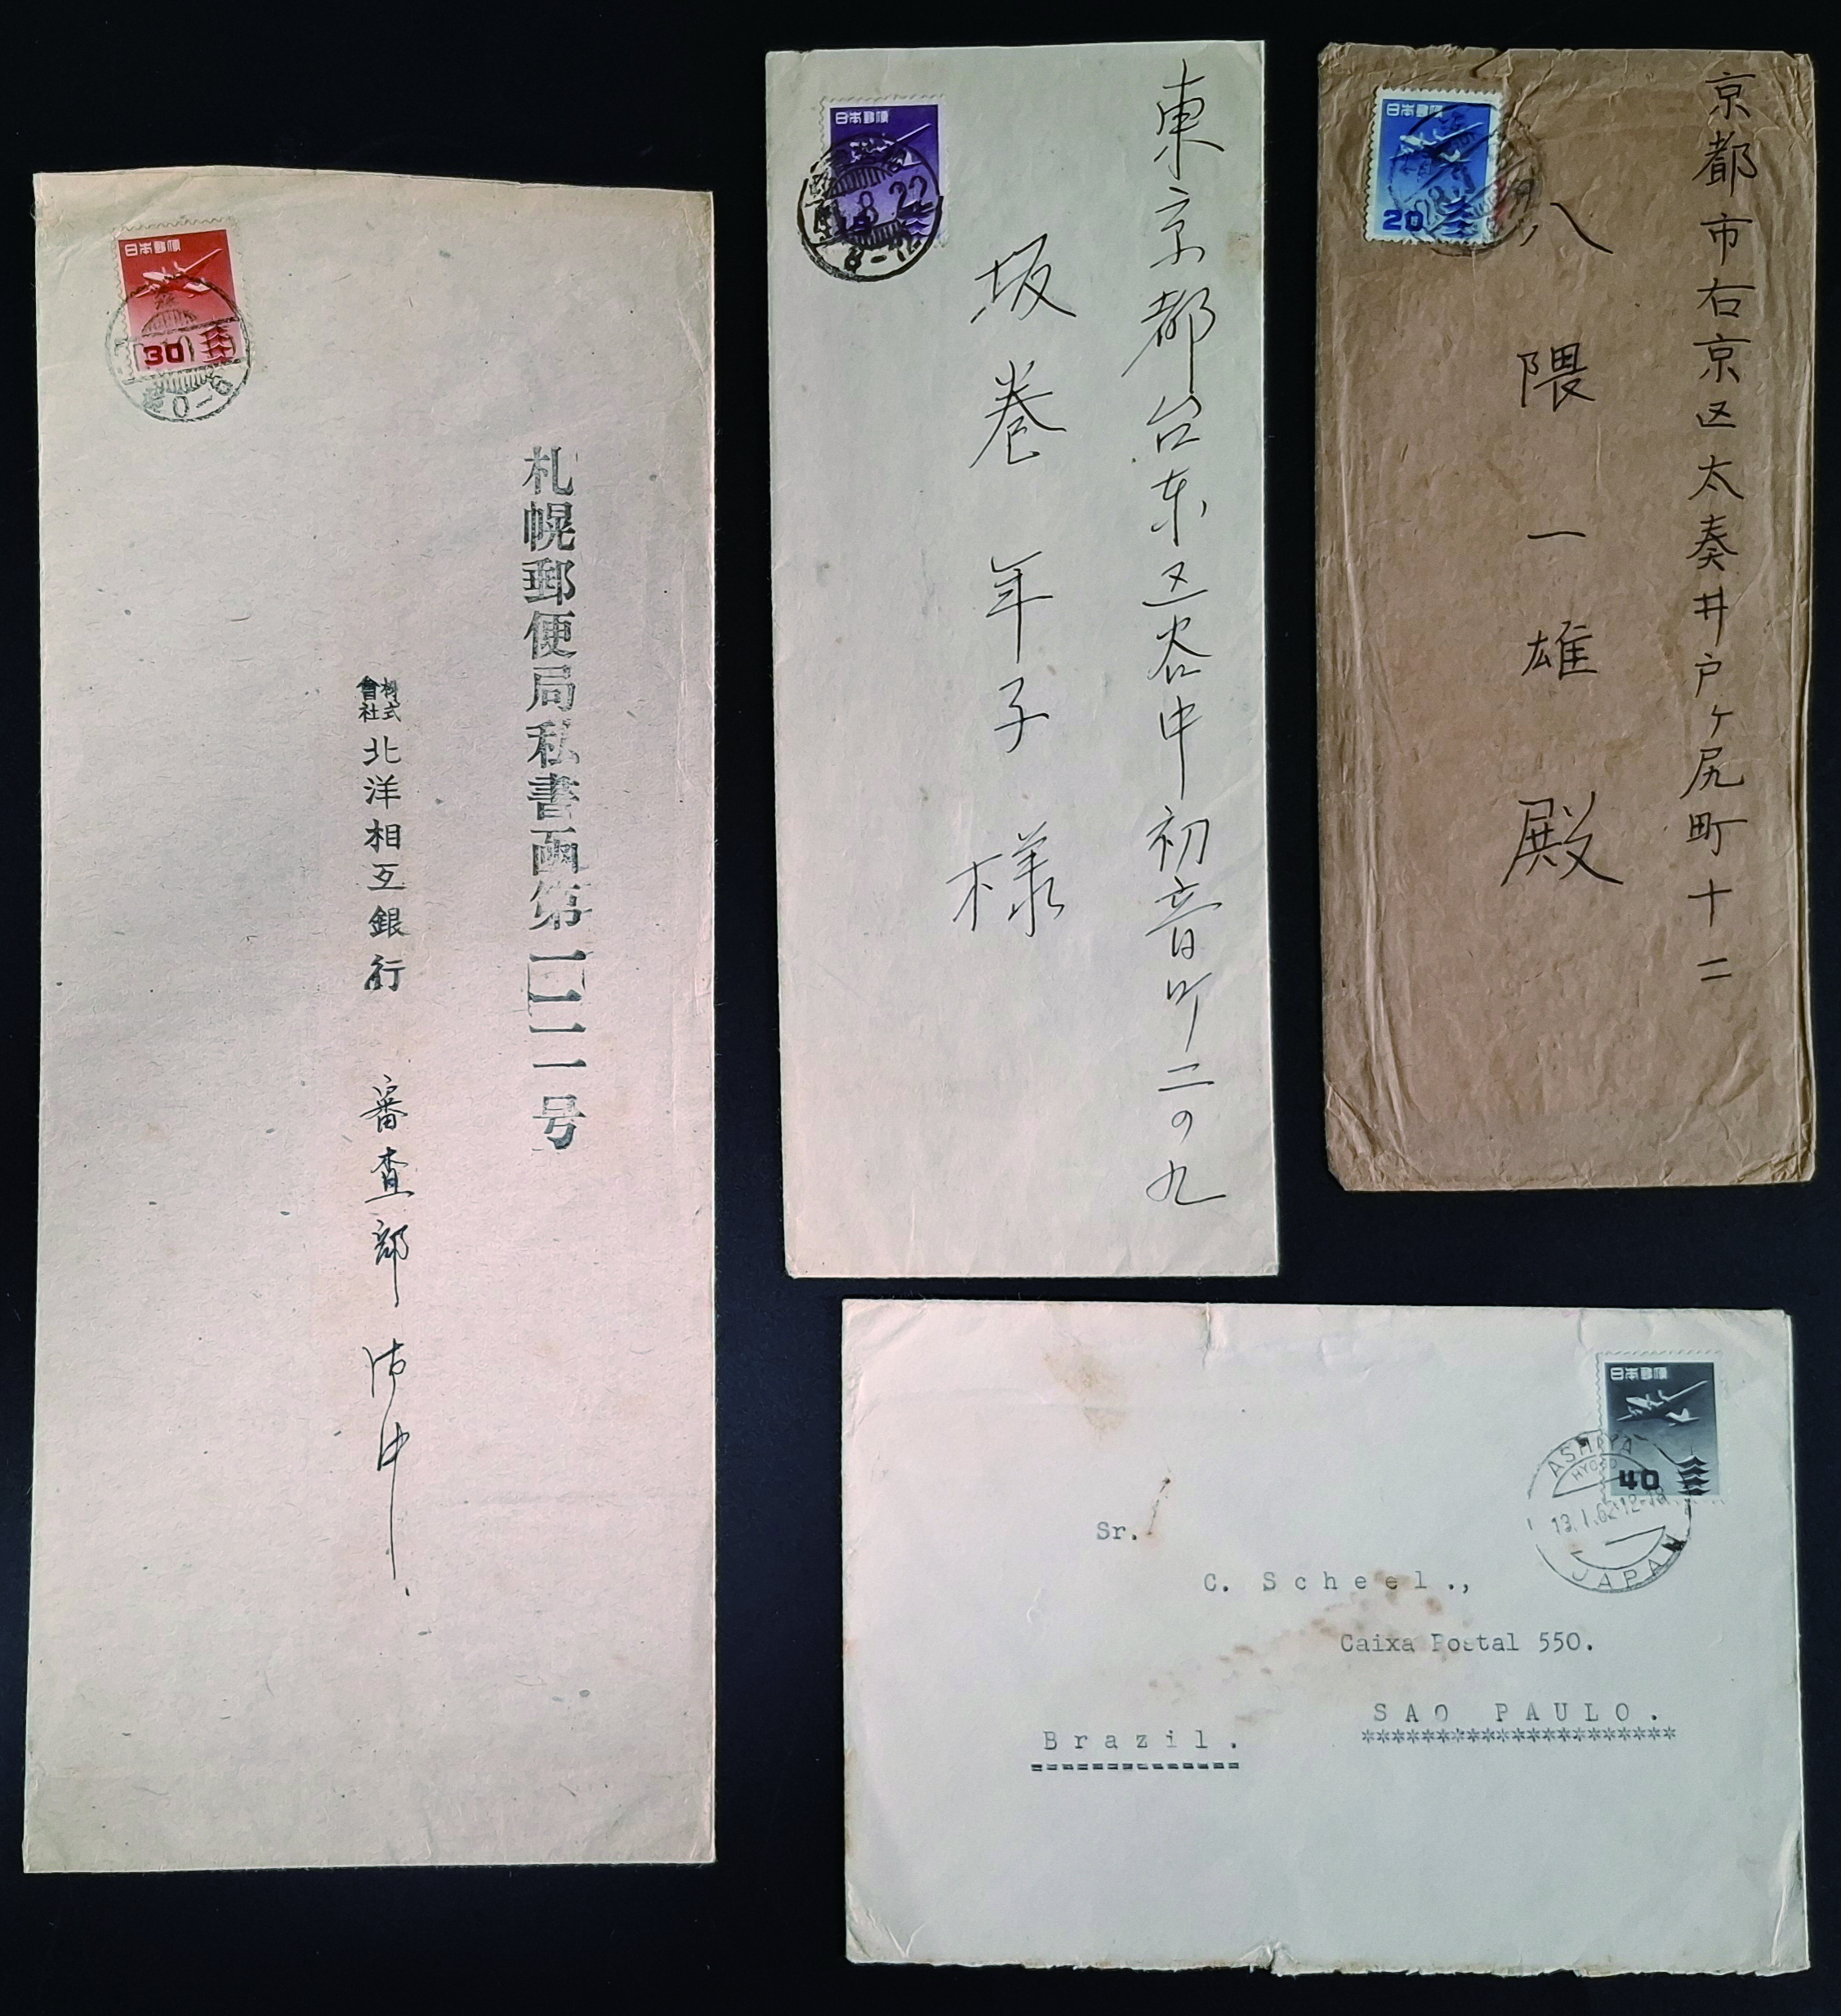 日本郵便
30
札幌郵便局私書函第
一一号
株式
會社
北洋相互銀行 審査部 御中
日本郵便
8.22
8-12
東京都台東区谷中初音町二の九
坂巻年子様
日本郵便
20
京都市右京区太秦井戸ヶ尻町十二
八隈一雄殿
日本郵便
40
ASHIYA
HYOGO
13.1.62 12-18
JAPAN
Sr.
C. Scheel.,
Caixa Postal 550.
SAO PAULO.
*********************
Brazil.